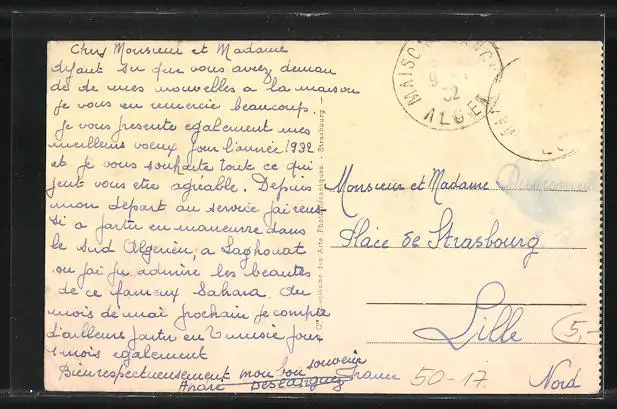 Chers Monsieur et Madame
Ayant su que vous aviez deman
dé de mes nouvelles a la maison
je vous en remercie beaucoup.
Je vous présente egalement mes
meilleurs voeux pour l'année 1932
et je vous souhaite tout ce qui
peut vous etre agréable. Depuis
mon départ au service j'ai reus
si a partir en maneuvre dans
le Sud Algerien, a Laghouat
ou j'ai pu admiré les beautés
de ce fameux Sahara. Au
mois de mai prochain je compte
d'ailleurs partir en Tunisie pour
mois egalement
Bien respectueusement mon bon souvenir
André Deslanguez
Strasbourg
MAISON
32
ALGER
Monsieur et Madame
Place de Strasbourg
Lille
Nord
France
50-17
5,-